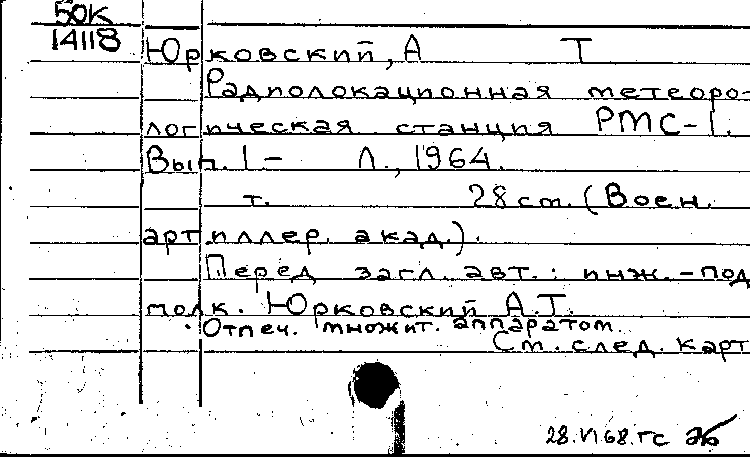 50К
14118
Юрковский, А Т
Радиолокационная метеоро-
логическая станция РМС-1.
Вып. 1- Л., 1964.
т. 28 cm. (Воен.
артиллер. акад.).
Перед загл. авт.: инж.-под
полк. Юрковский А.Т.
Отпеч. множит. аппаратом.
См. след. карт
28.VI 68. ГС